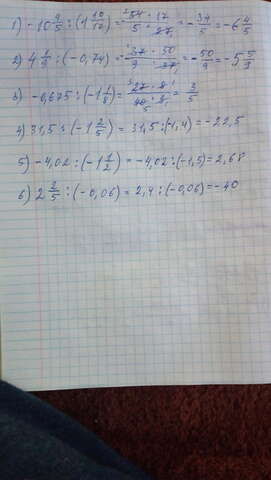 1) -10 4/5 : (1 10/17) = -54·17/5·27 = -34/5 = -6 4/5
2) 4 1/9 : (-0,74) = -37·50/9·37 = -50/9 = -5 5/9
3) -0,675 : (-1 1/8) = 27·8/40·9 = 3/5
4) 31,5 : (-1 2/5) = 31,5 : (-1,4) = -22,5
5) -4,02 : (-1 1/2) = -4,02 : (-1,5) = 2,68
6) 2 2/5 : (-0,06) = 2,4 : (-0,06) = -40